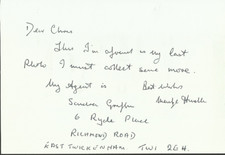 Dear Chris
This I'm afraid is my last
Photo I must collect some more.
My Agent is Best Wishes
Sandra Griffin
6 Ryde Place
RICHMOND ROAD
EAST TWICKENHAM TW1 2EH.